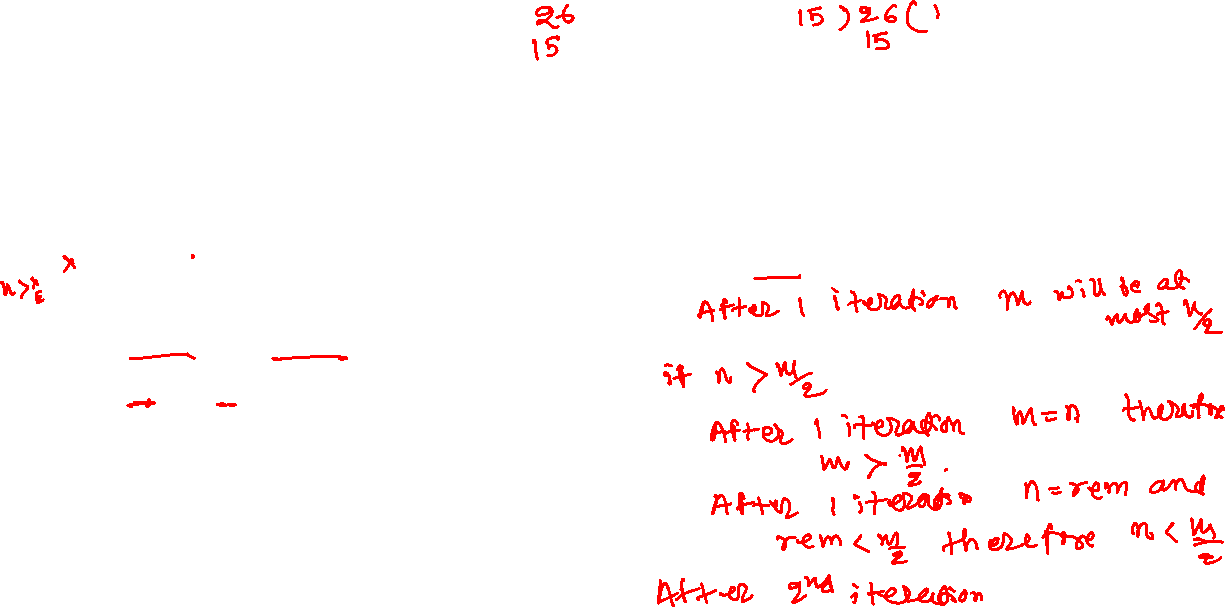 26
15
15 ) 26 ( 1
15
After 1 iteration m will be at
most n/2
if n > m/2
After 1 iteration m = n therefore
m > m/2.
After 1 iteration n = rem and
rem < m/2 therefore n < m/2
After 2nd iteration